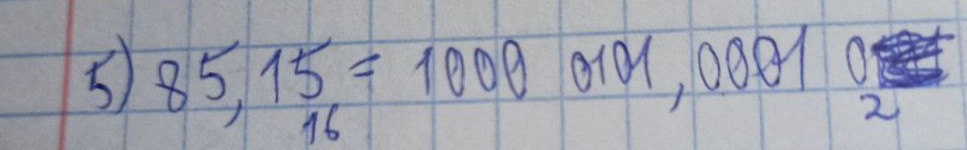 5) 85,15₁₆ = 1000 0101,0001 0₂